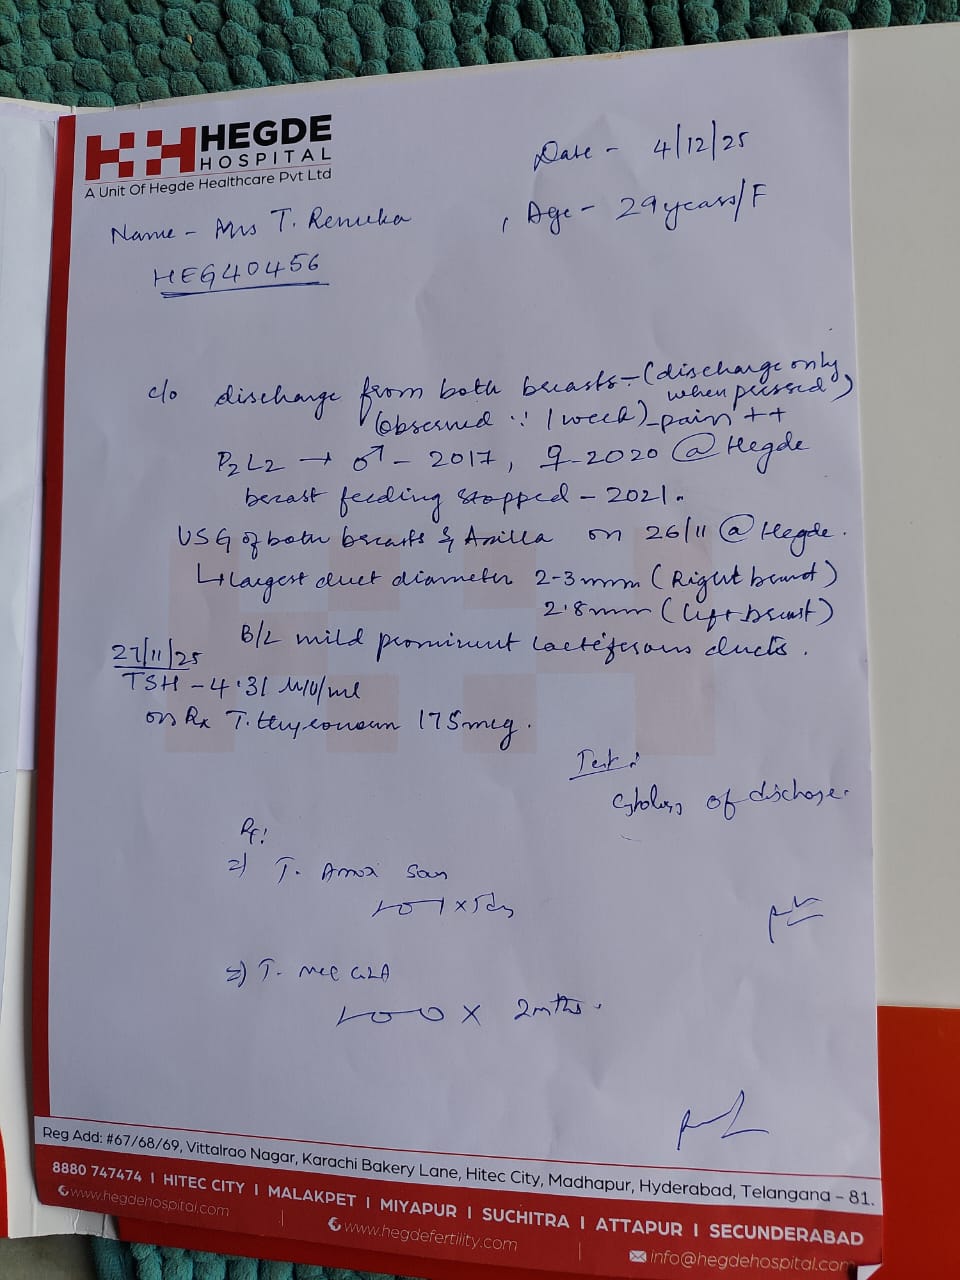 HEGDE
HOSPITAL
A Unit Of Hegde Healthcare Pvt Ltd
Date - 4/12/25
Name - Mrs T. Renuka , Age - 29 years/F
HEG40456
c/o discharge from both breasts - (discharge only when pressed)
(observed ∵ 1 week) - pain ++
P2L2 → ♂ - 2017, ♀ - 2020 @ Hegde
breast feeding stopped - 2021.
USG of both breasts & Axilla on 26/11 @ Hegde.
↳ largest duct diameter 2-3mm (Right breast)
2.8mm (left breast)
B/L mild prominent lactiferous ducts.
27/11/25
TSH - 4.31
on Rx T. 175mcg.
Test:
Cytology of discharge.
Rx:
T. Amox
1-0-1 x 5 days
T.
1-0-0 x 2 mths.
Reg Add: #67/68/69, Vittalrao Nagar, Karachi Bakery Lane, Hitec City, Madhapur, Hyderabad, Telangana - 81.
8880 747474 | HITEC CITY | MALAKPET | MIYAPUR | SUCHITRA | ATTAPUR | SECUNDERABAD
www.hegdehospital.com | www.hegdefertility.com | info@hegdehospital.com